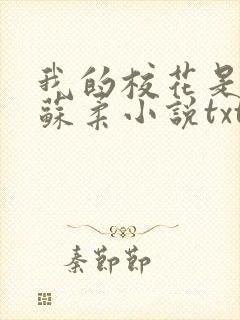 我的校花是
蘇柔小說txt
秦節節